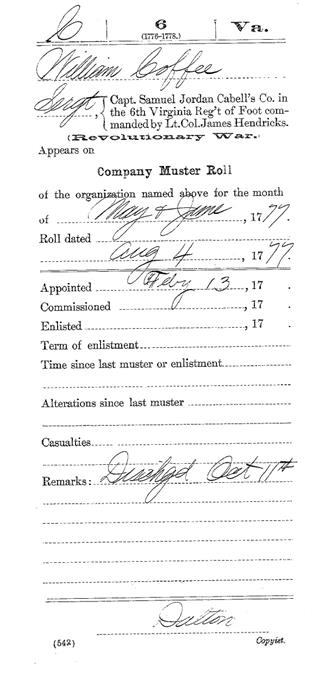 C 6 Va.
(1776-1778.)
William Coffee
Sergt, { Capt. Samuel Jordan Cabell's Co. in
the 6th Virginia Reg't of Foot com-
manded by Lt. Col. James Hendricks.
(Revolutionary War.)
Appears on
Company Muster Roll
of the organization named above for the month
of May & June, 1777.
Roll dated Aug 4, 1777.
Appointed Feby 13, 17 .
Commissioned , 17 .
Enlisted , 17 .
Term of enlistment
Time since last muster or enlistment
Alterations since last muster
Casualties
Remarks: Dischgd Oct 11th
Dalton
(542) Copyist.